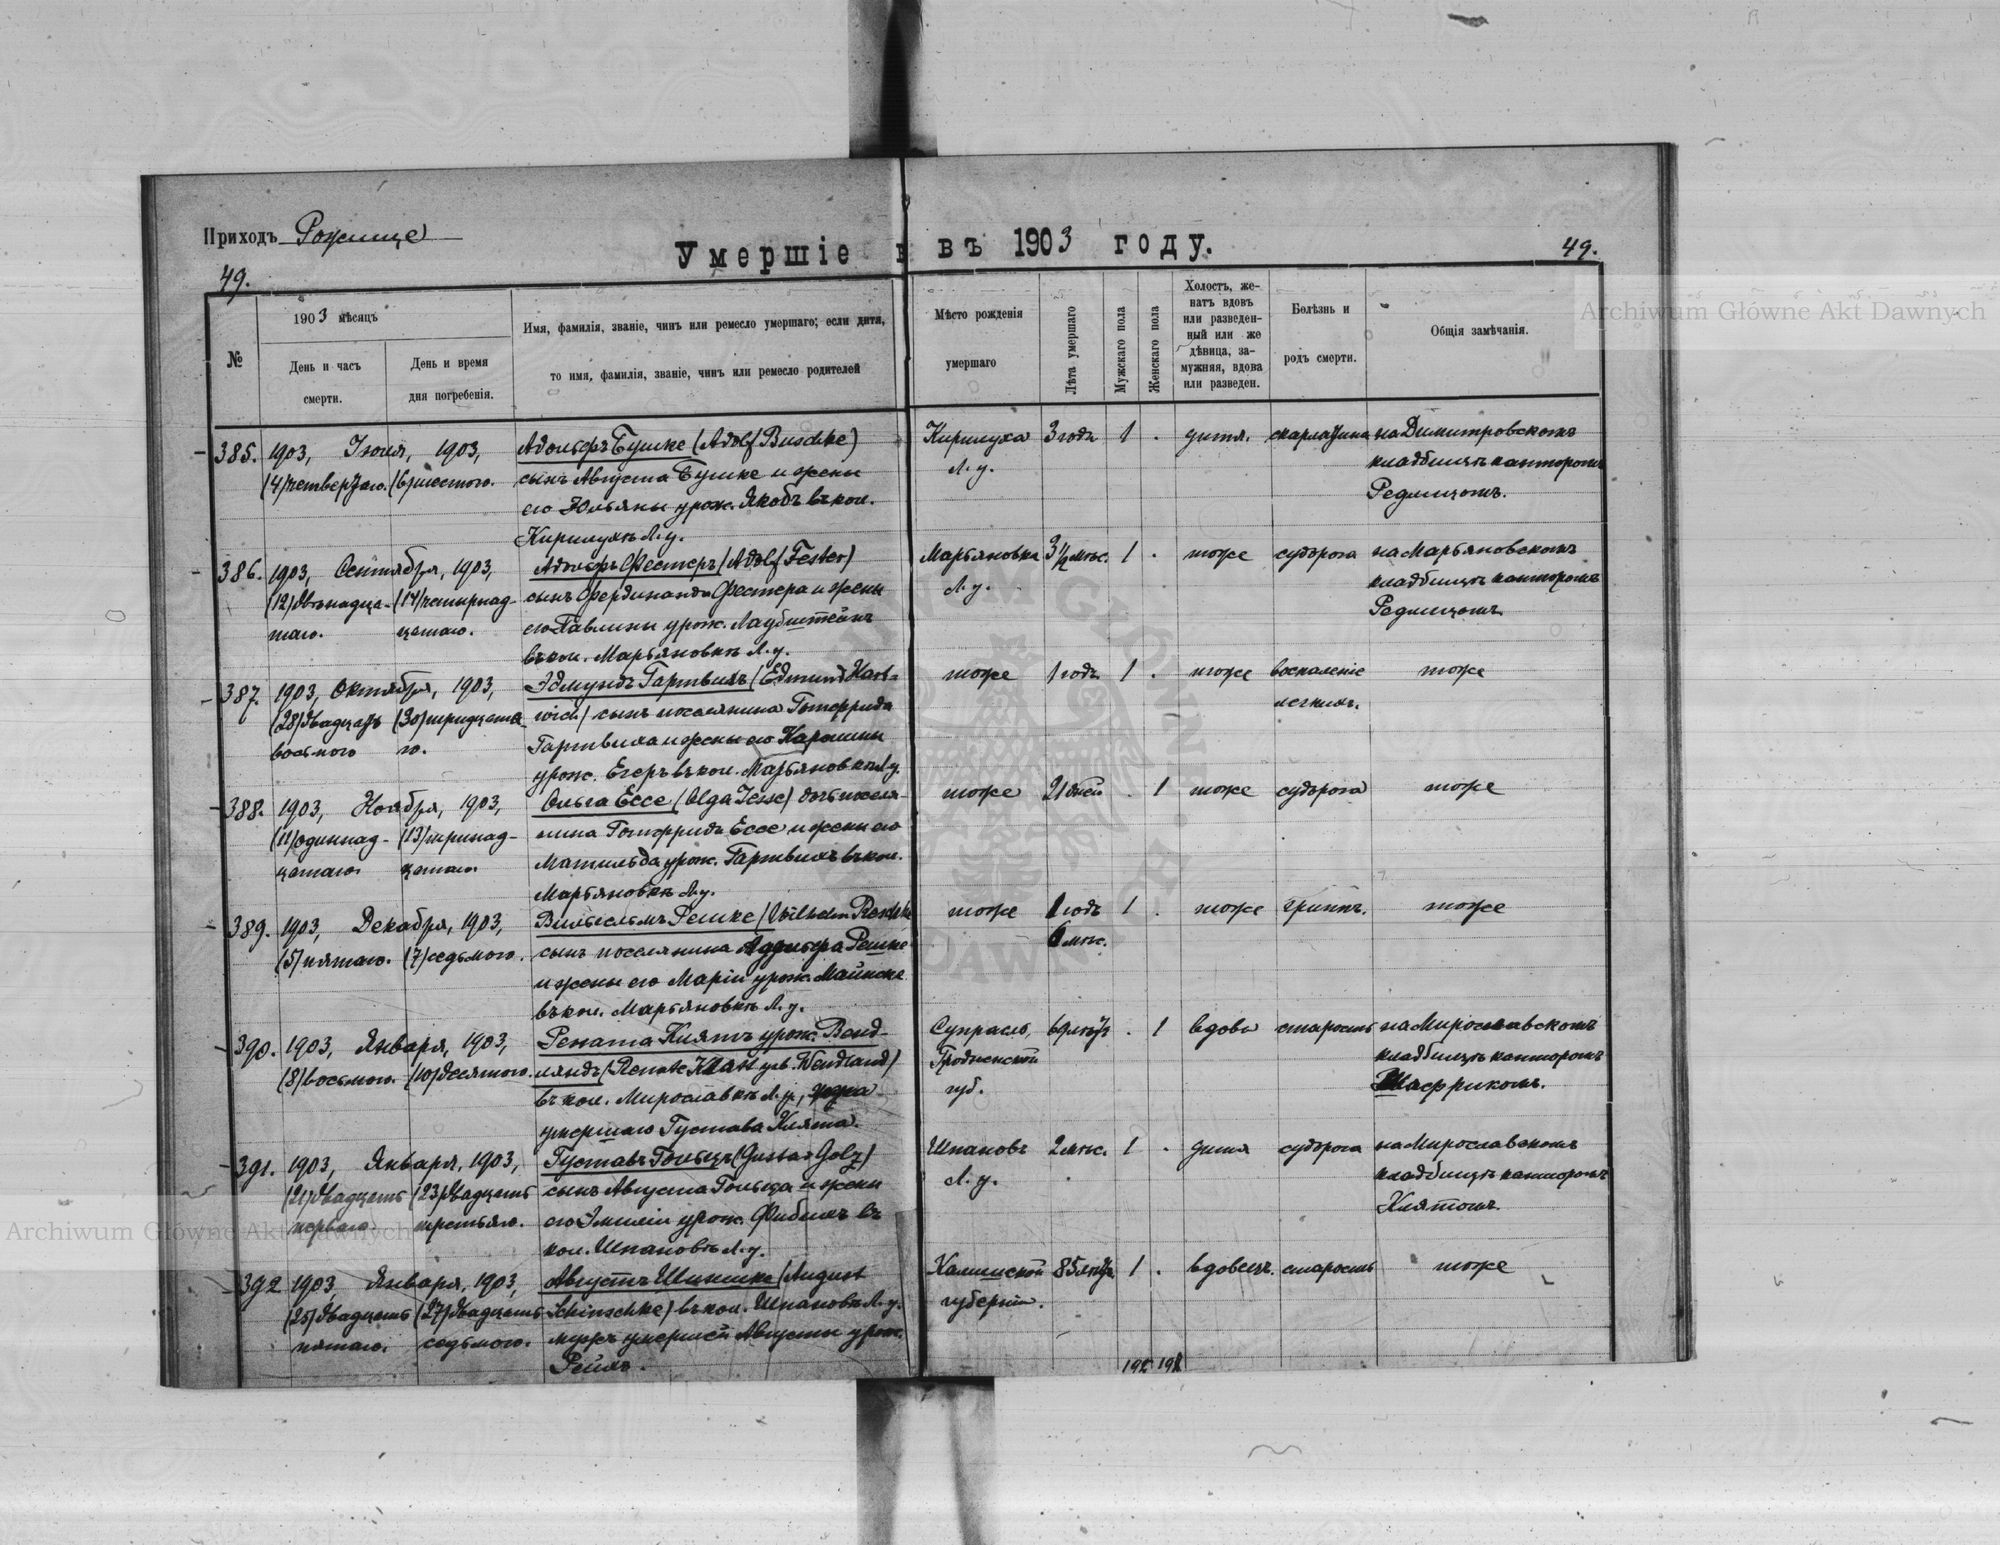 Приходъ Рожище
Умершіе въ 1903 году.
49.
49.
№
1903 мѣсяцъ
День и часъ
смерти.
День и время
дня погребенія.
Имя, фамилія, званіе, чинъ или ремесло умершаго; если дитя,
то имя, фамилія, званіе, чинъ или ремесло родителей
Мѣсто рожденія
умершаго
Лѣта умершаго
Мужскаго пола
Женскаго пола
Холостъ, же-
натъ вдовъ
или разведен-
ный или же
дѣвица, за-
мужняя, вдова
или разведен.
Болѣзнь и
родъ смерти.
Общія замѣчанія.
385. 1903, Іюля, 1903, Адольфъ Бушке (Adolf Buschke) Кирилуха 3 года 1 . дитя. скарлатина на Димитровскомъ
(4) четвертаго. (6) шестого. сынъ Августа Бушке и жены Л. у. кладбищѣ канторомъ
его Юльяны урож. Якобъ въ кол. Редлицомъ.
Кирилухѣ Л. у.
386. 1903, Сентября, 1903, Адольфъ Фестеръ (Adolf Fester) Марьяновка 3½ мѣс. 1 . тоже судорога на Марьяновскомъ
(12) двѣнадца- (14) четырнад- сынъ Фердинанда Фестера и жены Л. у. кладбищѣ канторомъ
таго. цатаго. его Павлины урож. Лаубштейнъ Редлицомъ
въ кол. Марьяновкѣ Л. у.
387. 1903, Октября, 1903, Эдмундъ Гартвихъ (Edmund Hart- тоже 1 годъ 1 . тоже воспаленіе тоже
(28) двадцать (30) тридцата- wich) сынъ поселянина Готфрида легкихъ.
восьмого го. Гартвиха и жены его Каролины
урож. Егеръ въ кол. Марьяновкѣ Л. у.
388. 1903, Ноября, 1903, Ольга Ессе (Olga Jesse) дочь поселя- тоже 21 дней . 1 тоже судорога тоже
(11) одиннад- (13) тринад- нина Готфридъ Ессе и жены его
цатаго цатаго Матильда урож. Гартвихъ въ кол.
Марьяновкѣ Л. у.
389. 1903, Декабря, 1903, Вильгельмъ Решке (Wilhelm Reschke тоже 1 годъ 1 . тоже гриппъ. тоже
(5) пятаго. (7) седьмого. сынъ поселянина Решке 6 мѣс.
и жены его Маріи урож. Манске
въ кол. Марьяновкѣ Л. у.
390. 1903, Января, 1903, Рената Клятъ урож. Венд- Супрасль, 69 лѣтъ . 1 вдова старость на Мирославскомъ
(8) восьмого. (10) десятого. ляндъ (Renate Klatt geb. Wendland) Гродненской кладбищѣ канторомъ
въ кол. Мирославкѣ Л. у., губ. Шафрикомъ.
умершаго Густава Клята.
391. 1903, Января, 1903, Густавъ Гольцъ (Gustav Golz) Шпановъ 2 мѣс. 1 . дитя судорога на Мирославскомъ
(21) двадцать (23) двадцать сынъ Августа Гольца и жены Л. у. кладбищѣ канторомъ
перваго третьяго. его Эмиліи урож. Фибихъ въ Клятомъ.
кол. Шпановѣ Л. у.
392 1903, Января, 1903, Августъ Шиншке (August Калишской 85 лѣтъ 1 . вдовецъ. старость тоже
(25) двадцать (27) двадцать Schinschke) въ кол. Шпановѣ Л. у. губерніи.
пятаго. седьмого. мужъ умершей Августы урож.
Рейхъ.
Archiwum Główne Akt Dawnych
Archiwum Główne Akt Dawnych